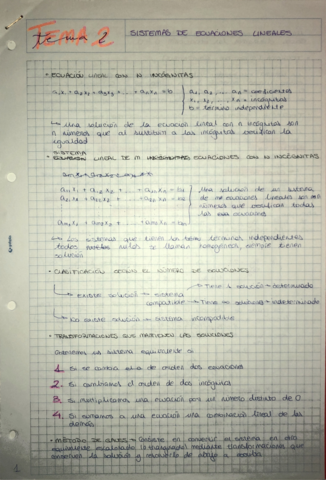 TEMA 2
SISTEMAS DE ECUACIONES LINEALES
• ECUACIÓN LINEAL CON n INCÓGNITAS
a₁x₁ + a₂x₂ + a₃x₃ + ... + aₙxₙ = b
a₁, a₂, ... aₙ = coeficientes
x₁, x₂, ... xₙ = incógnitas
b = término independiente
↳ Una solución de la ecuación lineal con n incógnitas son
n números que al sustituir a las incógnitas verifican la
igualdad
SISTEMA
• LINEAL DE m ECUACIONES CON n INCÓGNITAS
a₁₁x₁ + a₁₂x₂ + ... + a₁ₙxₙ = b₁
a₂₁x₁ + a₂₂x₂ + ... + a₂ₙxₙ = b₂
aₘ₁x₁ + aₘ₂x₂ + ... + aₘₙxₙ = bₘ
Una solución de un sistema
de m ecuaciones lineales son
números que verifican todas
las ecuaciones
↳ Los sistemas que tienen los términos independientes
todos nulos se llaman homogéneos, siempre tienen
solución
• CLASIFICACIÓN SEGÚN EL NÚMERO DE SOLUCIONES
↳ Existe solución → sistema
compatible
→ Tiene 1 solución → determinado
→ Tiene ∞ soluciones → indeterminado
↳ No existe solución → sistema incompatible
• TRANSFORMACIONES QUE MANTIENEN LAS SOLUCIONES
Obtenemos un sistema equivalente si:
1. Si se cambia el orden de dos ecuaciones
2. Si cambiamos el orden de dos incógnitas
3. Si multiplicamos una ecuación por un número distinto de 0
4. Si sumamos a una ecuación una combinación lineal de las
demás
• MÉTODO DE GAUSS → Consiste en convertir un sistema en otro
equivalente escalonado (o triangular) mediante transformaciones que
conserven la solución y resolverlo de abajo a arriba
1